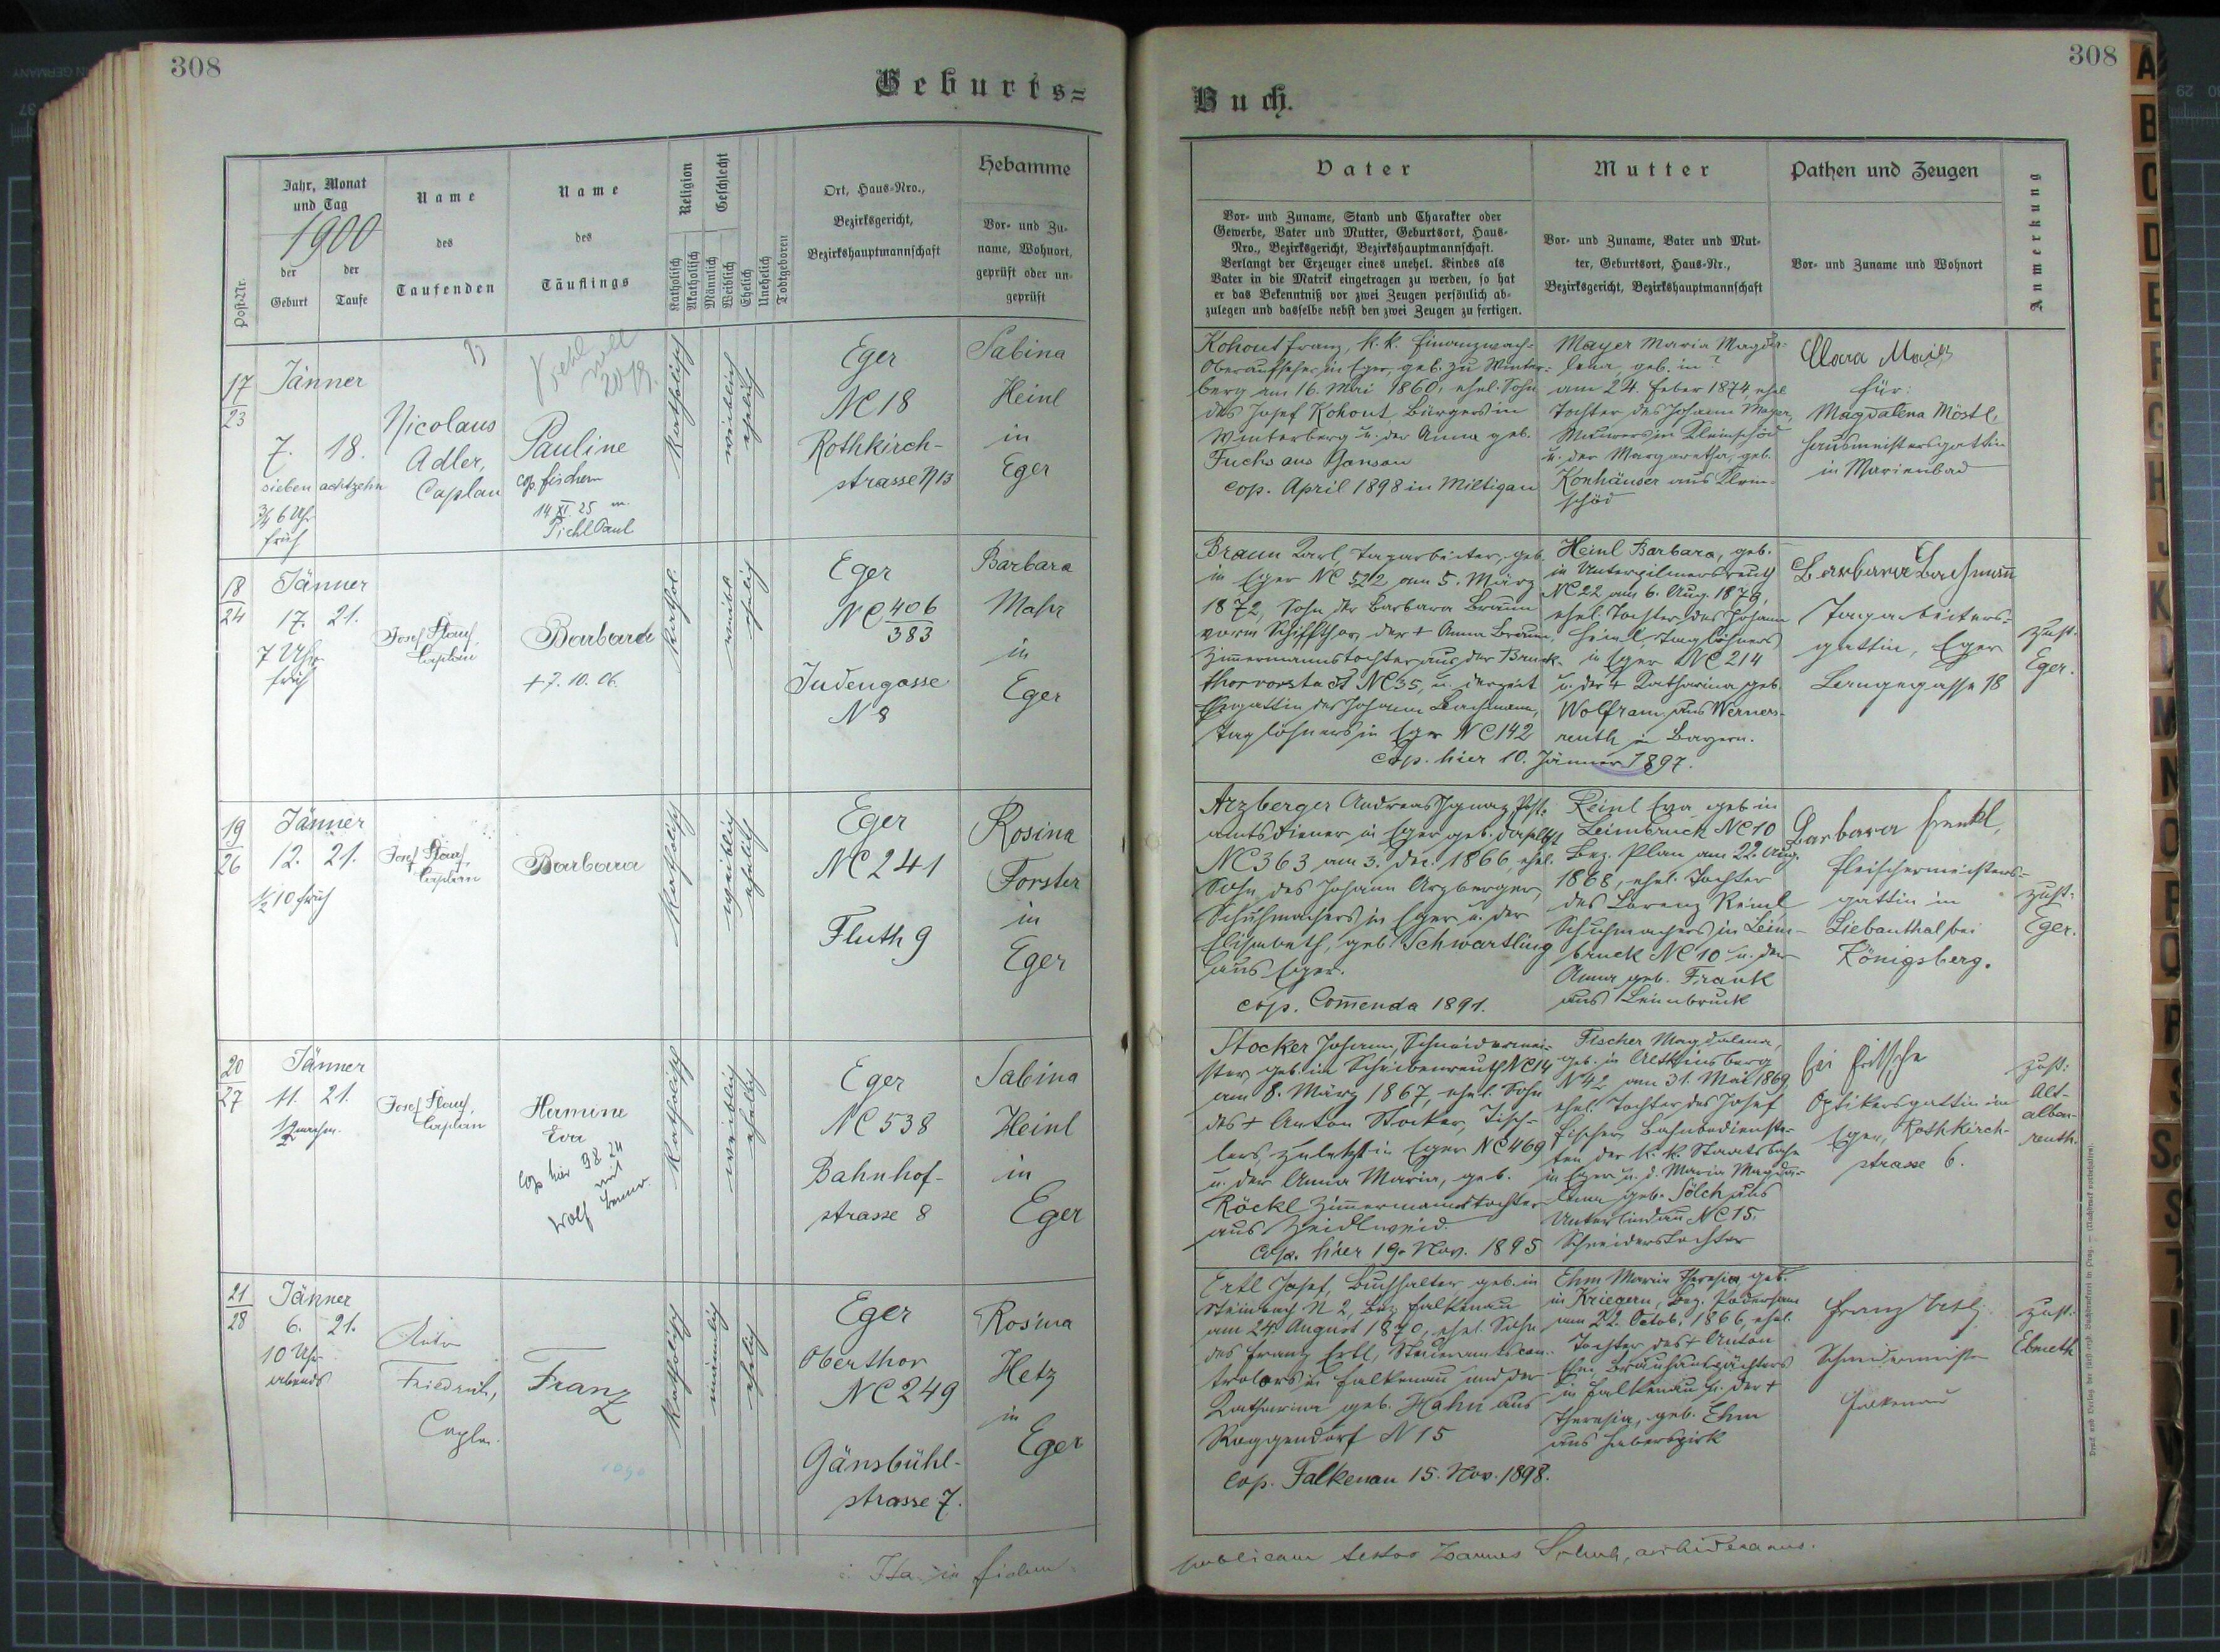 308
Geburts=
Post-Nr.
Jahr, Monat
und Tag
1900
der
Geburt
der
Taufe
Name
des
Taufenden
Name
des
Täuflings
Religion
Katholisch
Akatholisch
Geschlecht
Männlich
Weiblich
Ehelich
Unehelich
Todtgeboren
Ort, Haus-Nro.,
Bezirksgericht,
Bezirkshauptmannschaft
Hebamme
Vor- und Zu-
name, Wohnort,
geprüft oder un-
geprüft
17
23
Jänner
7. 18.
sieben achtzehn
3/4 6 Uhr
früh
Nicolaus
Adler,
Caplan
Pauline
cop. fischern
14.XI.25 m.
Pichl Paul
katholisch
weiblich
ehelich
Eger
NC 18
Rothkirch-
strasse N 13
Sabina
Heinl
in
Eger
18
24
Jänner
17. 21.
7 Uhr
früh
Josef
Caplan
Barbara
+ 7. 10. 06.
kathol.
weibl.
ehelich
Eger
NC 406
383
Judengasse
N 8
Barbara
Mahr
in
Eger
19
26
Jänner
12. 21.
1/2 10 früh
Josef
Caplan
Barbara
katholisch
weiblich
ehelich
Eger
NC 241
Fluth 9
Rosina
Forster
in
Eger
20
27
Jänner
11. 21.
Josef
Caplan
Hermine
Eva
cop. hier 9.8.24
mit
Wolf
katholisch
weiblich
ehelich
Eger
NC 538
Bahnhof-
strasse 8
Sabina
Heinl
in
Eger
21
28
Jänner
6. 21.
10 Uhr
abends
Friedrich,
Caplan
Franz
katholisch
männlich
ehelich
Eger
Oberthor
NC 249
Gänsbühl-
strasse 7.
Rosina
Hetz
in
Eger
Ita in fidem
308
Buch.
Vater
Vor- und Zuname, Stand und Charakter oder
Gewerbe, Vater und Mutter, Geburtsort, Haus-
Nro., Bezirksgericht, Bezirkshauptmannschaft.
Verlangt der Erzeuger eines unehel. Kindes als
Vater in die Matrik eingetragen zu werden, so hat
er das Bekenntniß vor zwei Zeugen persönlich ab-
zulegen und dasselbe nebst den zwei Zeugen zu fertigen.
Mutter
Vor- und Zuname, Vater und Mut-
ter, Geburtsort, Haus-Nr.,
Bezirksgericht, Bezirkshauptmannschaft
Pathen und Zeugen
Vor- und Zuname und Wohnort
Anmerkung
Kohout Franz, k.k. Finanzwach-
Oberaufseher in Eger, geb. zu Winter-
berg am 16. Mai 1860, ehel. Sohn
des Josef Kohout, Bürgers in
Winterberg u. der Anna geb.
Fuchs aus
cop. April 1898 in Miltigau
Mayer Maria Magda-
lena, geb. in ?
am 24. Feber 1874, ehel.
Tochter des Johann Mayer,
Maurers in Kleinschöd
u. der Margaretha, geb.
Konhäuser aus Klein-
schöd
Clara
für:
Magdalena Möstl,
Hausmeistersgattin
in Marienbad
Braun Karl, Tagarbeiter, geb.
in Eger NC 522 am 5. März
1872, Sohn der Barbara Braun
vorm Schiffthor, der + Anna Braun,
Zimmermannstochter aus der Bruck-
thorvorstadt NC 35, u. derzeit
Ehegattin des Johann Bachmann,
Taglöhners in Eger NC 142
cop. hier 10. Jänner 1897.
Heinl Barbara, geb.
in Unterpilmersreuth
NC 22 am 6. Aug. 1879,
ehel. Tochter des Johann
Heinl, Taglöhners
in Eger NC 214
u. der + Katharina geb.
Wolfram aus Werners-
reuth in Bayern.
Barbara Bachmann
Tagarbeiters-
gattin, Eger
Langegasse 18
zust.
Eger.
Arzberger Andreas Ignaz, Post-
amtsdiener in Eger geb. daselbst
NC 363 am 3. Dez. 1866, ehel.
Sohn des Johann Arzberger,
Schuhmachers in Eger u. der
Elisabeth, geb. Schwartling
aus Eger.
cop. Com̄enda 1891.
Reinl Eva, geb in
Leimbruck NC 10
Bez. Plan am 22. Aug.
1868, ehel. Tochter
des Lorenz Reinl
Schuhmachers in Leim-
bruck NC 10 u. der
Anna geb. Frank
aus Leimbruck
Barbara Frenkl,
Fleischermeisters-
gattin in
Liebauthal bei
Königsberg.
zust.
Eger.
Stocker Johann, Schneidermei-
ster, geb. in Scheibenreuth NC 14
am 8. März 1867, ehel. Sohn
des + Anton Stocker, Tisch-
lers zuletzt in Eger NC 469
u. der Anna Maria, geb.
Röckl Zimmermannstochter
aus Zeidlweid.
Cop. hier 19. Nov. 1895
Fischer Magdalena,
geb. in Altkinsberg
N 42 am 31. Mai 1869
ehel. Tochter des Josef
Fischer, Bahnbedienste-
ten der k. k. Staatsbahn
in Eger u. d. Maria Magda-
lena geb. Sölch aus
Unterlindau NC 15,
Schneiderstochter
Fritsche
Optikersgattin in
Eger, Rothkirch-
strasse 6.
zust:
Alt-
alben-
reuth.
Ertl Josef, Buchhalter, geb. in
Steinbach N 2, Bez. Falkenau
am 24. August 1870, ehel. Sohn
des Franz Ertl, Steueramtscon-
trolors in Falkenau und der
Katharina geb. Hahn aus
Roggendorf N 15
cop. Falkenau 15. Nov. 1898.
Ehm Maria Theresia, geb.
in Kriegern, Bez. Podersam
am 22. Octob. 1866, ehel.
Tochter des + Anton
Ehm, Bräuhauspächters
in Falkenau u. der +
Theresia, geb. Ehm
aus Haberspirk
Franz Ertl,
Schneidermeister
Falkenau
zust.
Ebmeth
publicam testor Joannes